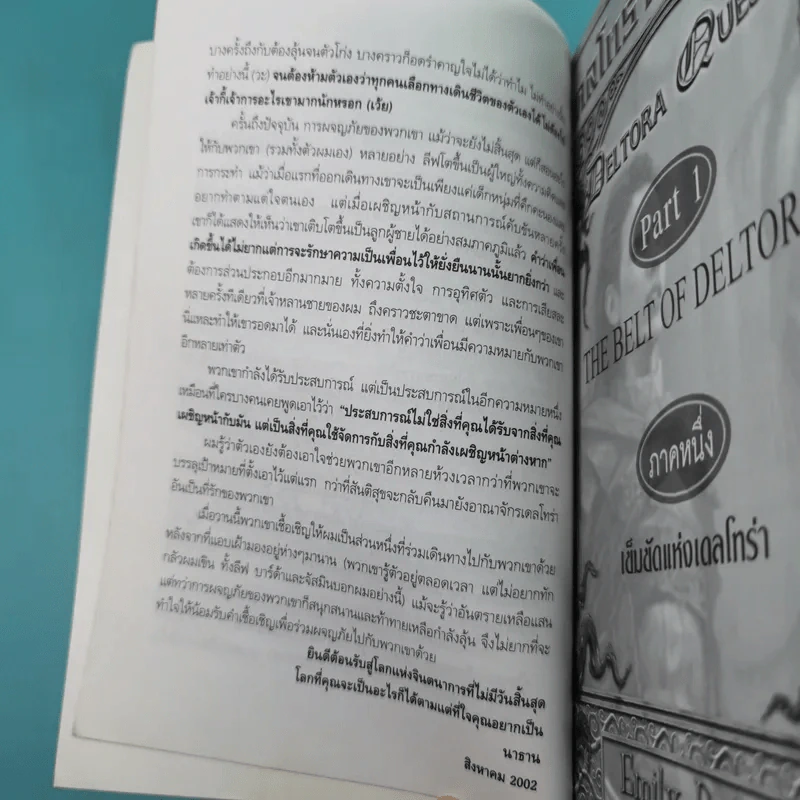 บางครั้งถึงกับต้องลุ้นจนตัวโก่ง บางคราวก็อดรำคาญใจไม่ได้ว่าทำไม
ทำอย่างนี้ (วะ) จนต้องห้ามตัวเองว่าทุกคนเลือกทางเดินชีวิตของตัวเองได้
เจ้ากี้เจ้าการอะไรเขามากนักหรอก (เว้ย)
ครั้นถึงปัจจุบัน การผจญภัยของพวกเขา แม้ว่าจะยังไม่สิ้นสุด
ให้กับพวกเขา (รวมทั้งตัวผมเอง) หลายอย่าง ลีฟโตขึ้นเป็นผู้ใหญ่ทั้งความคิดและ
การกระทำ แม้ว่าเมื่อแรกที่ออกเดินทางเขาจะเป็นเพียงแค่เด็กหนุ่มที่คึกคะนองและ
อยากทำตามแต่ใจตนเอง แต่เมื่อเผชิญหน้ากับสถานการณ์คับขันหลายครั้ง
เขาก็ได้แสดงให้เห็นว่าเขาเติบโตขึ้นเป็นลูกผู้ชายได้อย่างสมภาคภูมิแล้ว คำว่าเพื่อน
เกิดขึ้นได้ไม่ยากแต่การจะรักษาความเป็นเพื่อนไว้ให้ยั่งยืนนานนั้นยากยิ่งกว่า และ
ต้องการส่วนประกอบอีกมากมาย ทั้งความตั้งใจ การอุทิศตัว และการเสียสละ
หลายครั้งทีเดียวที่เจ้าหลานชายของผม ถึงคราวชะตาขาด แต่เพราะเพื่อนๆของเขา
นี่แหละทำให้เขารอดมาได้ และนั่นเองที่ยิ่งทำให้คำว่าเพื่อนมีความหมายกับพวกเขา
อีกหลายเท่าตัว
พวกเขากำลังได้รับประสบการณ์ แต่เป็นประสบการณ์ในอีกความหมายหนึ่ง
เหมือนที่ใครบางคนเคยพูดเอาไว้ว่า "ประสบการณ์ไม่ใช่สิ่งที่คุณได้รับจากสิ่งที่คุณ
เผชิญหน้ากับมัน แต่เป็นสิ่งที่คุณใช้จัดการกับสิ่งที่คุณกำลังเผชิญหน้าต่างหาก"
ผมรู้ว่าตัวเองยังต้องเอาใจช่วยพวกเขาอีกหลายห้วงเวลากว่าที่พวกเขาจะ
บรรลุเป้าหมายที่ตั้งเอาไว้แต่แรก กว่าที่สันติสุขจะกลับคืนมายังอาณาจักรเดลโทร่า
อันเป็นที่รักของพวกเขา
เมื่อวานนี้พวกเขาเชื้อเชิญให้ผมเป็นส่วนหนึ่งที่ร่วมเดินทางไปกับพวกเขาด้วย
หลังจากที่แอบเฝ้ามองอยู่ห่างๆมานาน (พวกเขารู้ตัวอยู่ตลอดเวลา แต่ไม่อยากทัก
กลัวผมเขิน ทั้งลีฟ บาร์ด้าและจัสมินบอกผมอย่างนี้) แม้จะรู้ว่าอันตรายเหลือแสน
แต่ทว่าการผจญภัยของพวกเขาก็สนุกสนานและท้าทายเหลือกำลังลุ้น จึงไม่ยากที่จะ
ทำใจให้น้อมรับคำเชื้อเชิญเพื่อร่วมผจญภัยไปกับพวกเขาด้วย
ยินดีต้อนรับสู่โลกแห่งจินตนาการที่ไม่มีวันสิ้นสุด
โลกที่คุณจะเป็นอะไรก็ได้ตามแต่ที่ใจคุณอยากเป็น
นาธาน
สิงหาคม 2002
DELTORA
Part 1
THE BELT OF DELTOR
ภาคหนึ่ง
เข็มขัดแห่งเดลโทร่า
Emily